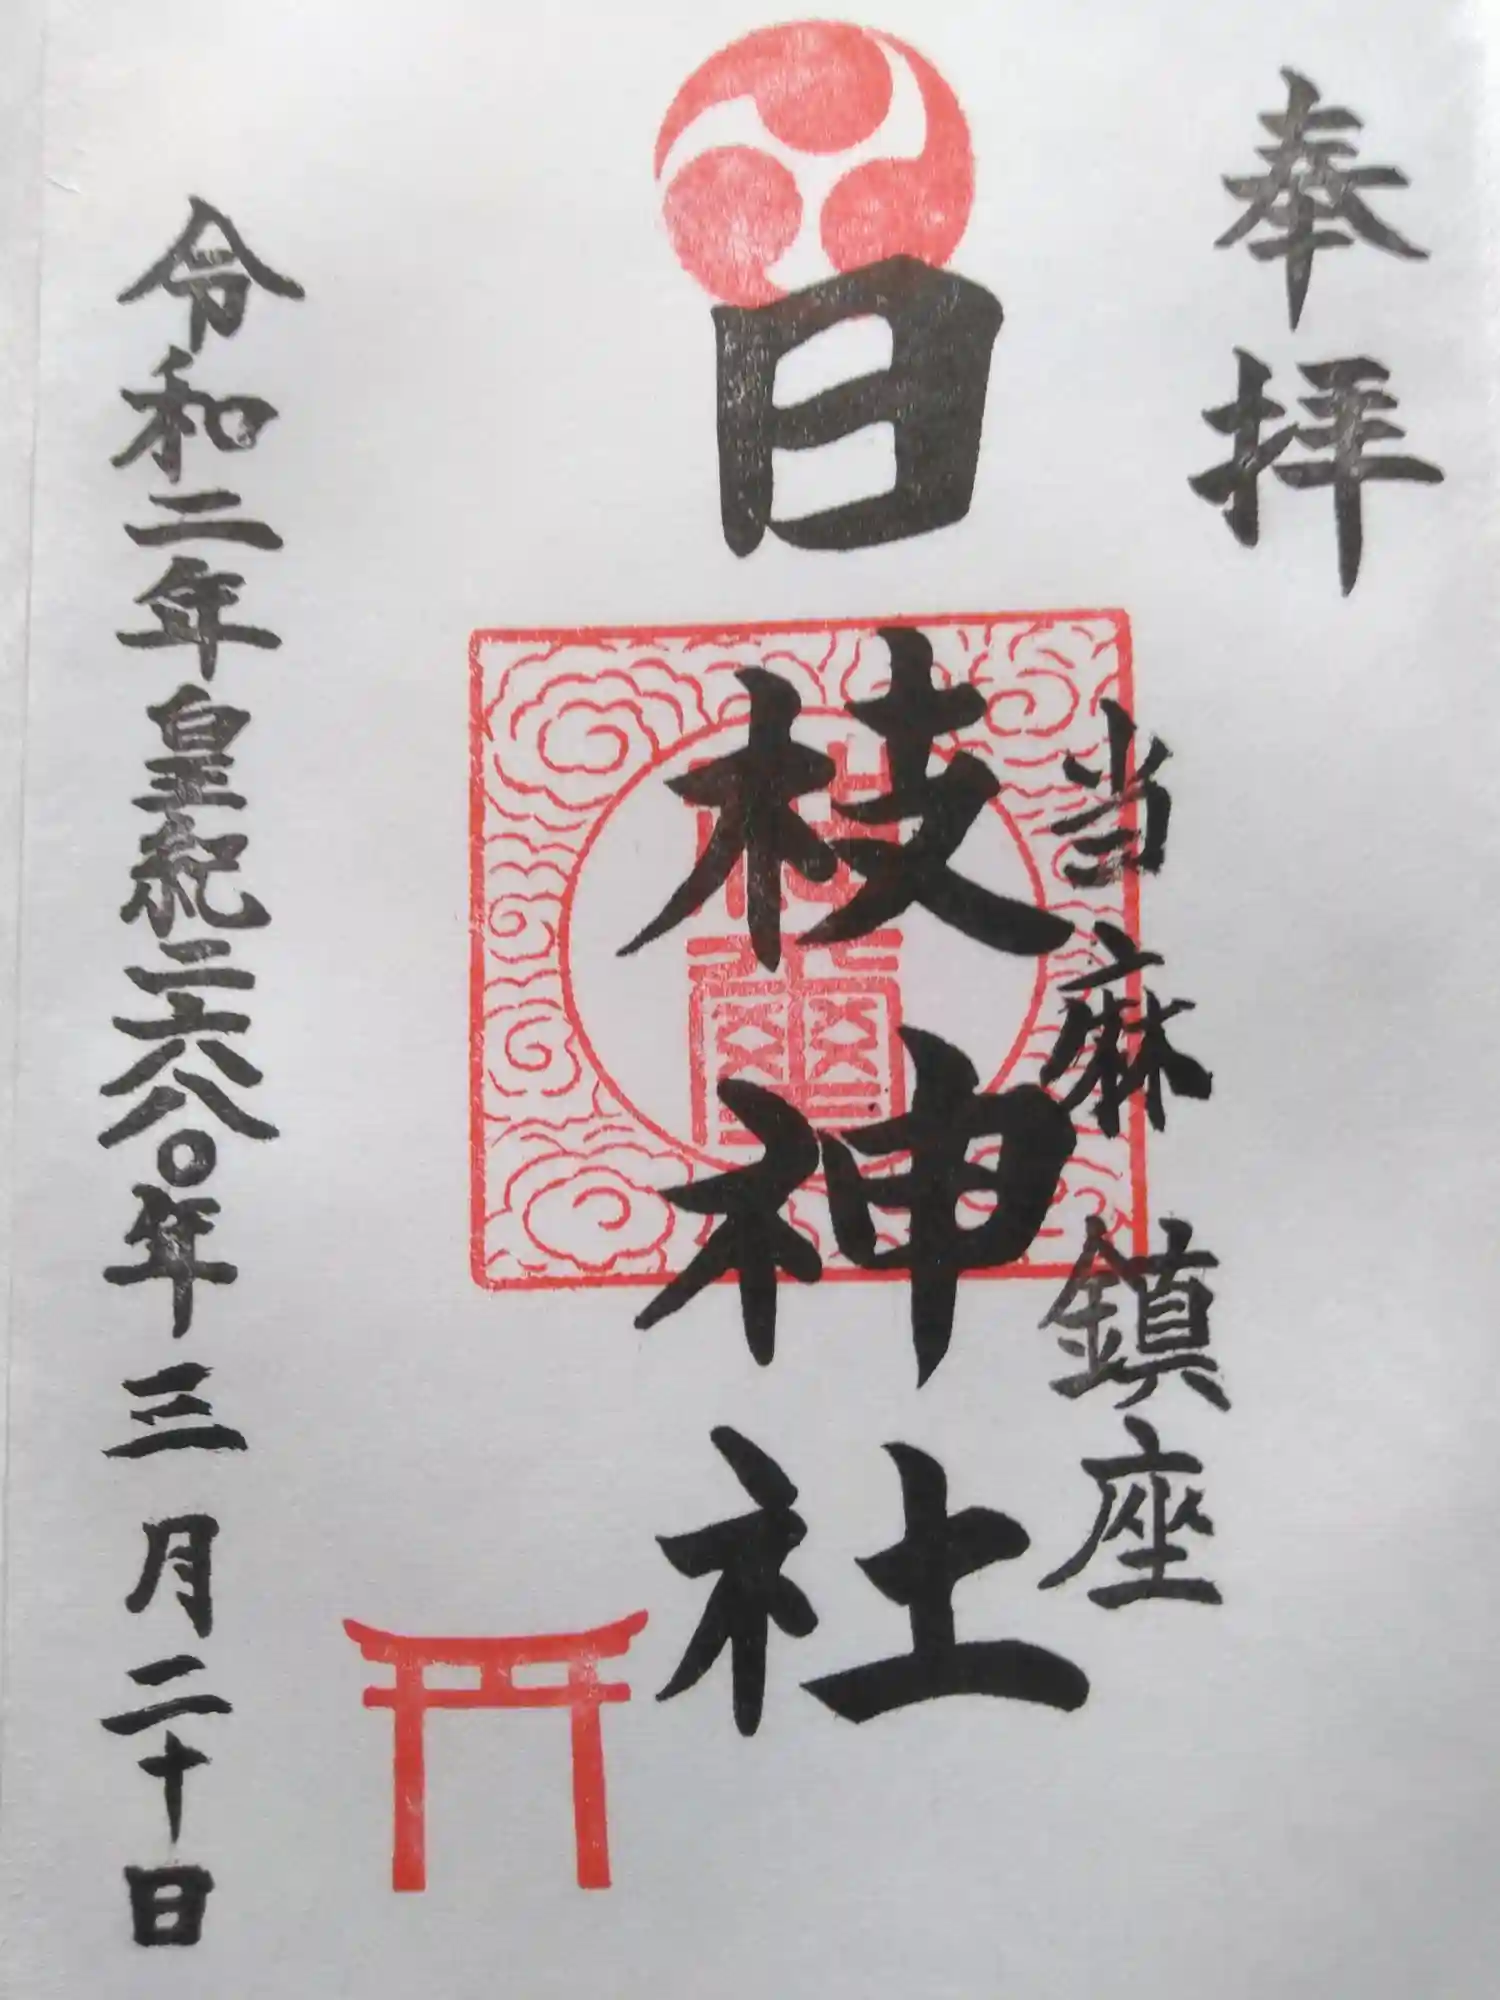 奉拝
当麻 鎮座
日枝神社
令和二年皇紀二六八〇年三月二十日